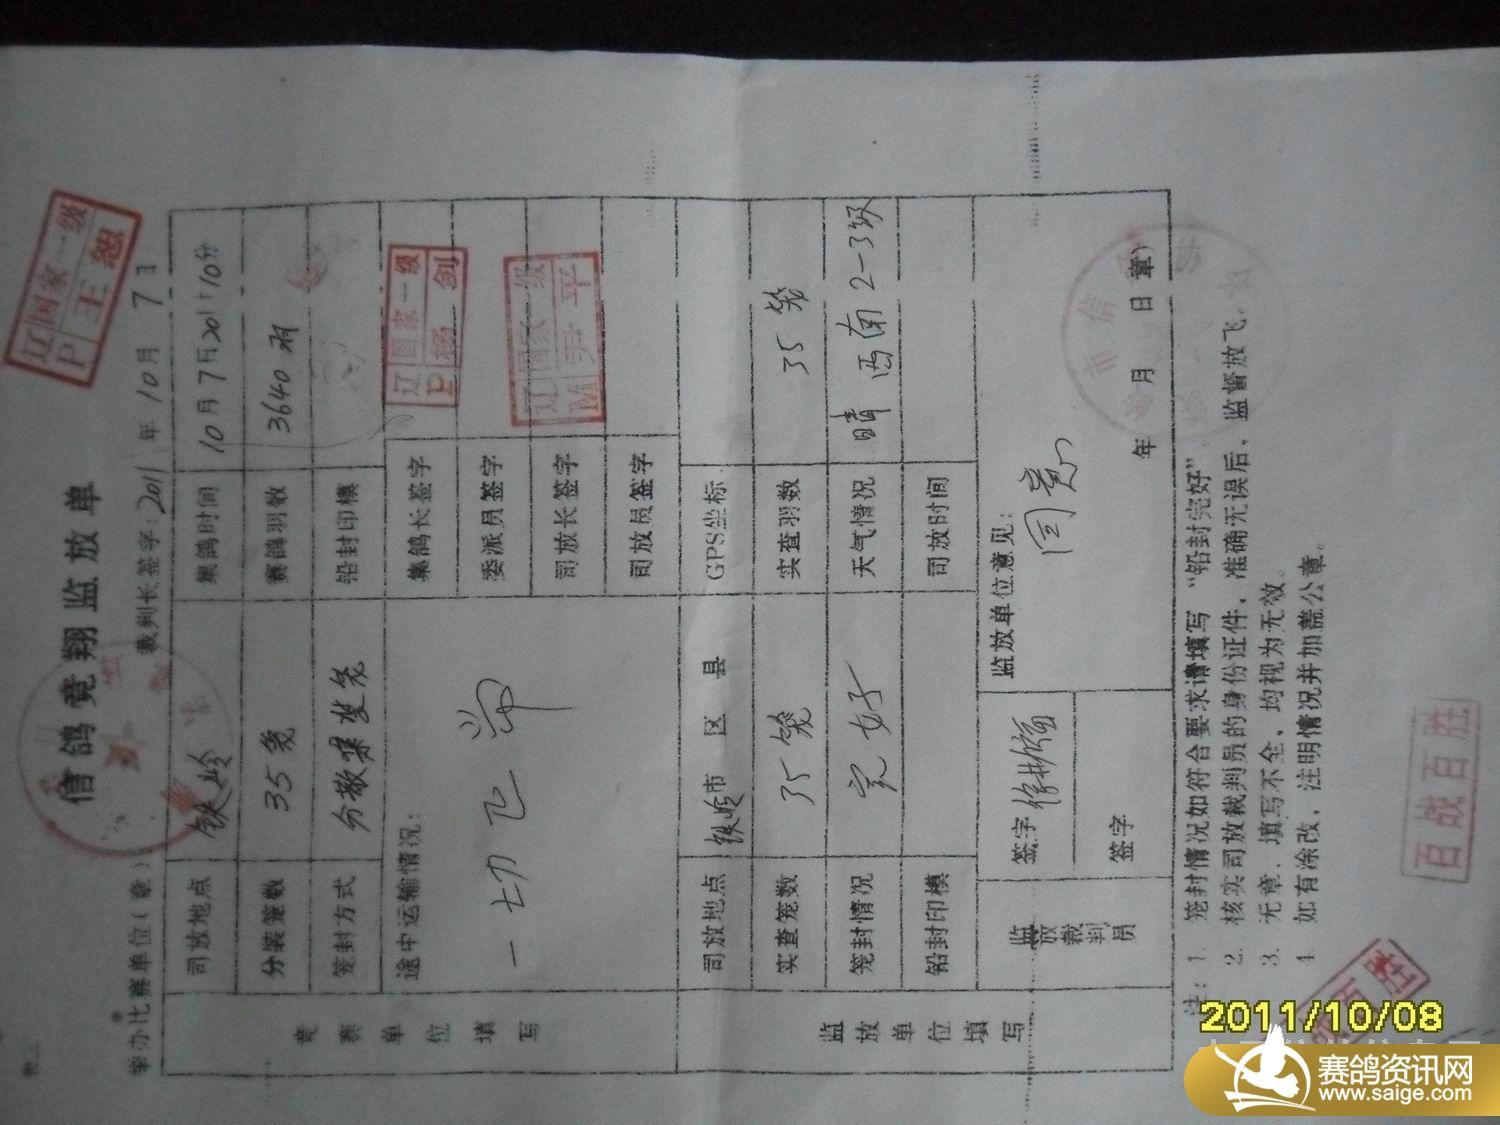 表三
信鸽竞翔监放单
举办比赛单位(章)
裁判长签字:2011年10月7日
辽国家一级
P王恕
竞赛单位填写
司放地点 铁岭 集鸽时间 10月7日20时10分
分装笼数 35笼 赛鸽羽数 3640羽
笼封方式 铅封印模
途中运输情况:
一切正常
集鸽长签字
辽国家一级
P杨剑
委派员签字
司放长签字
辽国家一级
M尹平
司放员签字
监放单位填写
司放地点 铁岭市 区 县 GPS坐标
实查笼数 35笼 实查羽数 35笼
笼封情况 完好 天气情况 晴 西南2-3级
铅封印模 司放时间
监放裁判员
签字
签字
监放单位意见:
同意
年 月 日(章)
注:1. 笼封情况如符合要求请填写“铅封完好”
2. 核实司放裁判员的身份证件,准确无误后,监督放飞。
3. 无章、填写不全,均视为无效。
4. 如有涂改,注明情况并加盖公章。
百战百胜
2011/10/08
赛鸽资讯网
www.saige.com